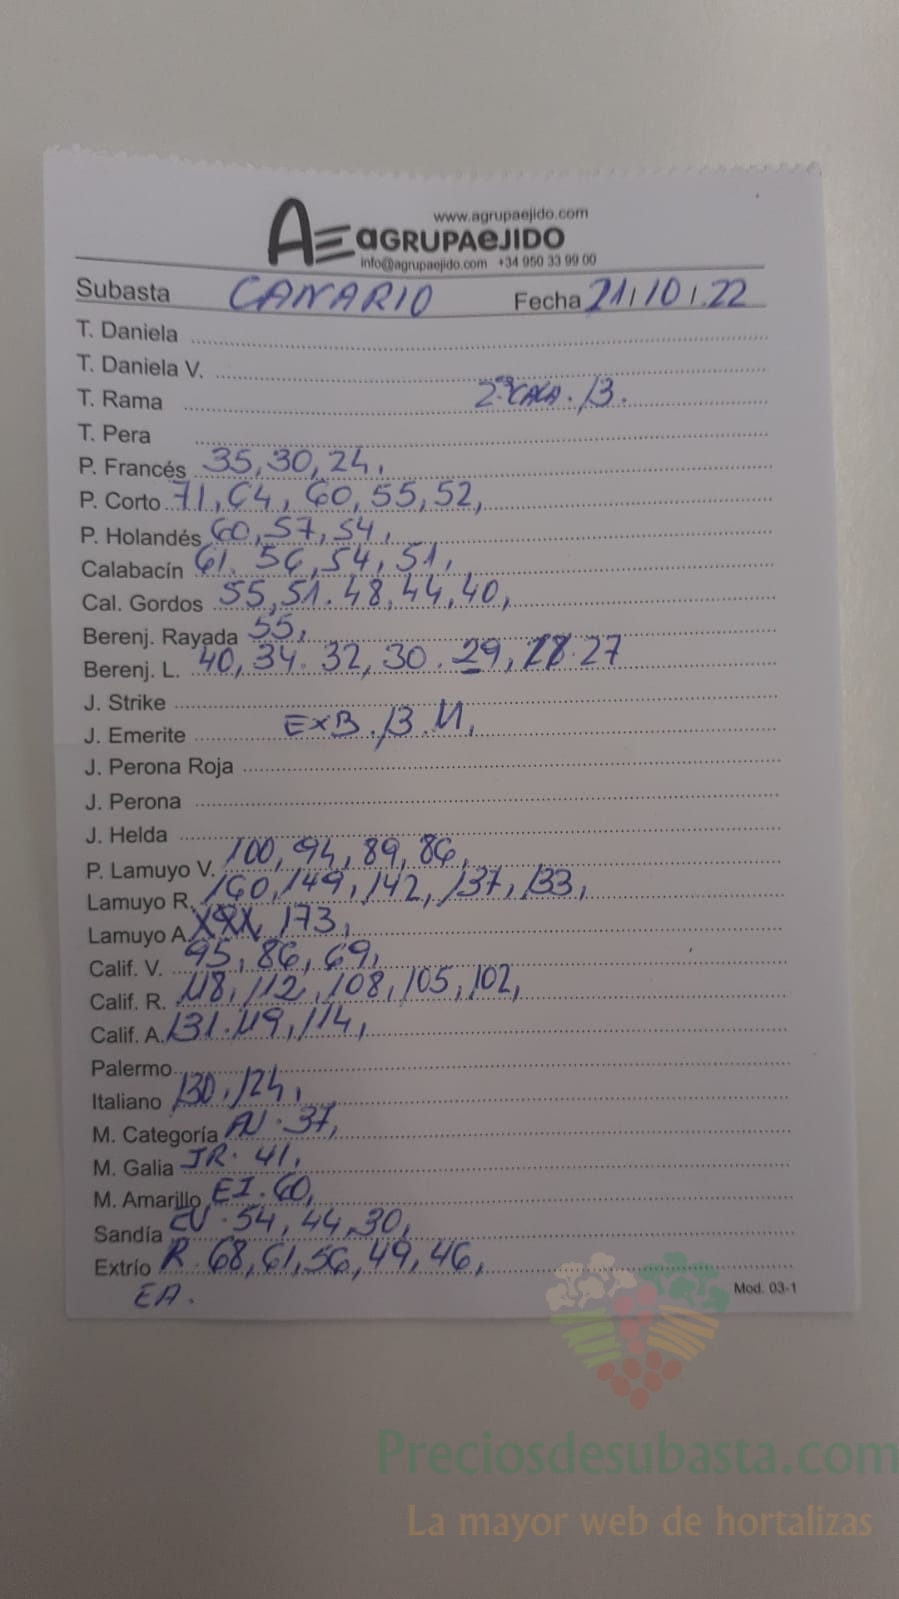 www.agrupaejido.com
AE aGRUPAeJIDO
info@agrupaejido.com +34 950 33 99 00
Subasta CANARIO Fecha 21/10/.22
T. Daniela
T. Daniela V.
T. Rama 13.
T. Pera
P. Francés 35, 30, 24,
P. Corto 71, 64, 60, 55, 52,
P. Holandés 60, 57, 54,
Calabacín 61. 56, 54, 51,
Cal. Gordos 55, 51. 48, 44, 40,
Berenj. Rayada 55,
Berenj. L. 40, 34. 32, 30. 29, 28. 27
J. Strike
J. Emerite ExB. 13. 11,
J. Perona Roja
J. Perona
J. Helda
P. Lamuyo V. 100, 94, 89, 86,
Lamuyo R. 160, 149, 142, 137, 133,
Lamuyo A. 173,
Calif. V. 95, 86, 69,
Calif. R. 118, 112, 108, 105, 102,
Calif. A. 131. 119, 114,
Palermo
Italiano 130, 124,
M. Categoría 37,
M. Galia JR. 41,
M. Amarillo EI. 60,
Sandía EV. 54, 44, 30,
Extrío R. 68, 61, 56, 49, 46,
EA.
Mod. 03-1
Preciosdesubasta.com
La mayor web de hortalizas